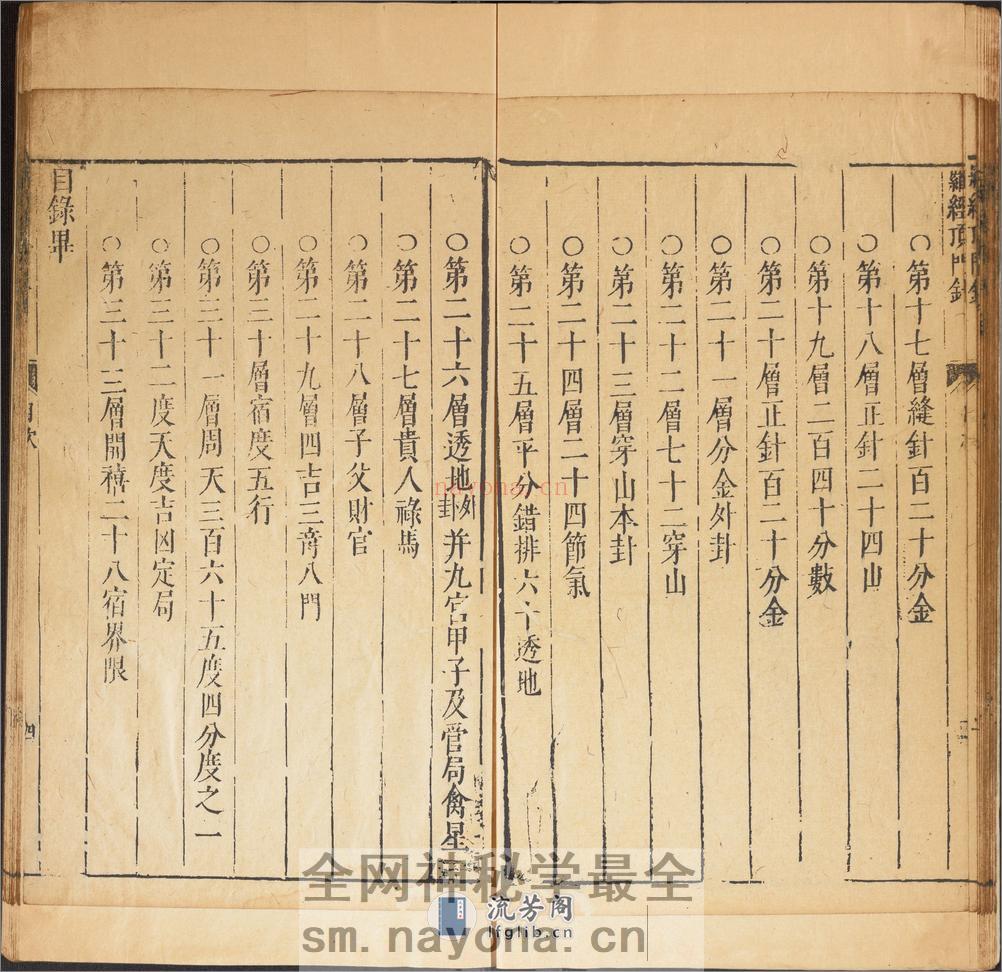 羅經頂門針
○第十七層縫針百二十分金
○第十八層正針二十四山
○第十九層二百四十分數
○第二十層正針百二十分金
○第二十一層分金外卦
○第二十二層七十二穿山
○第二十三層穿山本卦
○第二十四層二十四節氣
○第二十五層平分錯排六十透地
○第二十六層透地卦并九宮甲子及管局禽星
○第二十七層貴人祿馬
○第二十八層子父財官
○第二十九層四吉三竒八門
○第三十層宿度五行
○第三十一層周天三百六十五度四分度之一
○第三十二度天度吉凶定局
○第三十三層開禧二十八宿界限
目錄畢
nayona.cn
全网神秘学最全
流芳阁
lfglib.cn
sm.nayona.cn